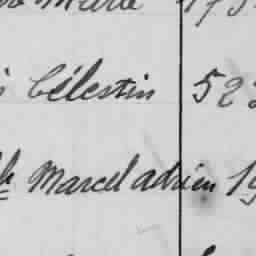 Marie
Célestin 52
Marcel adrien 19